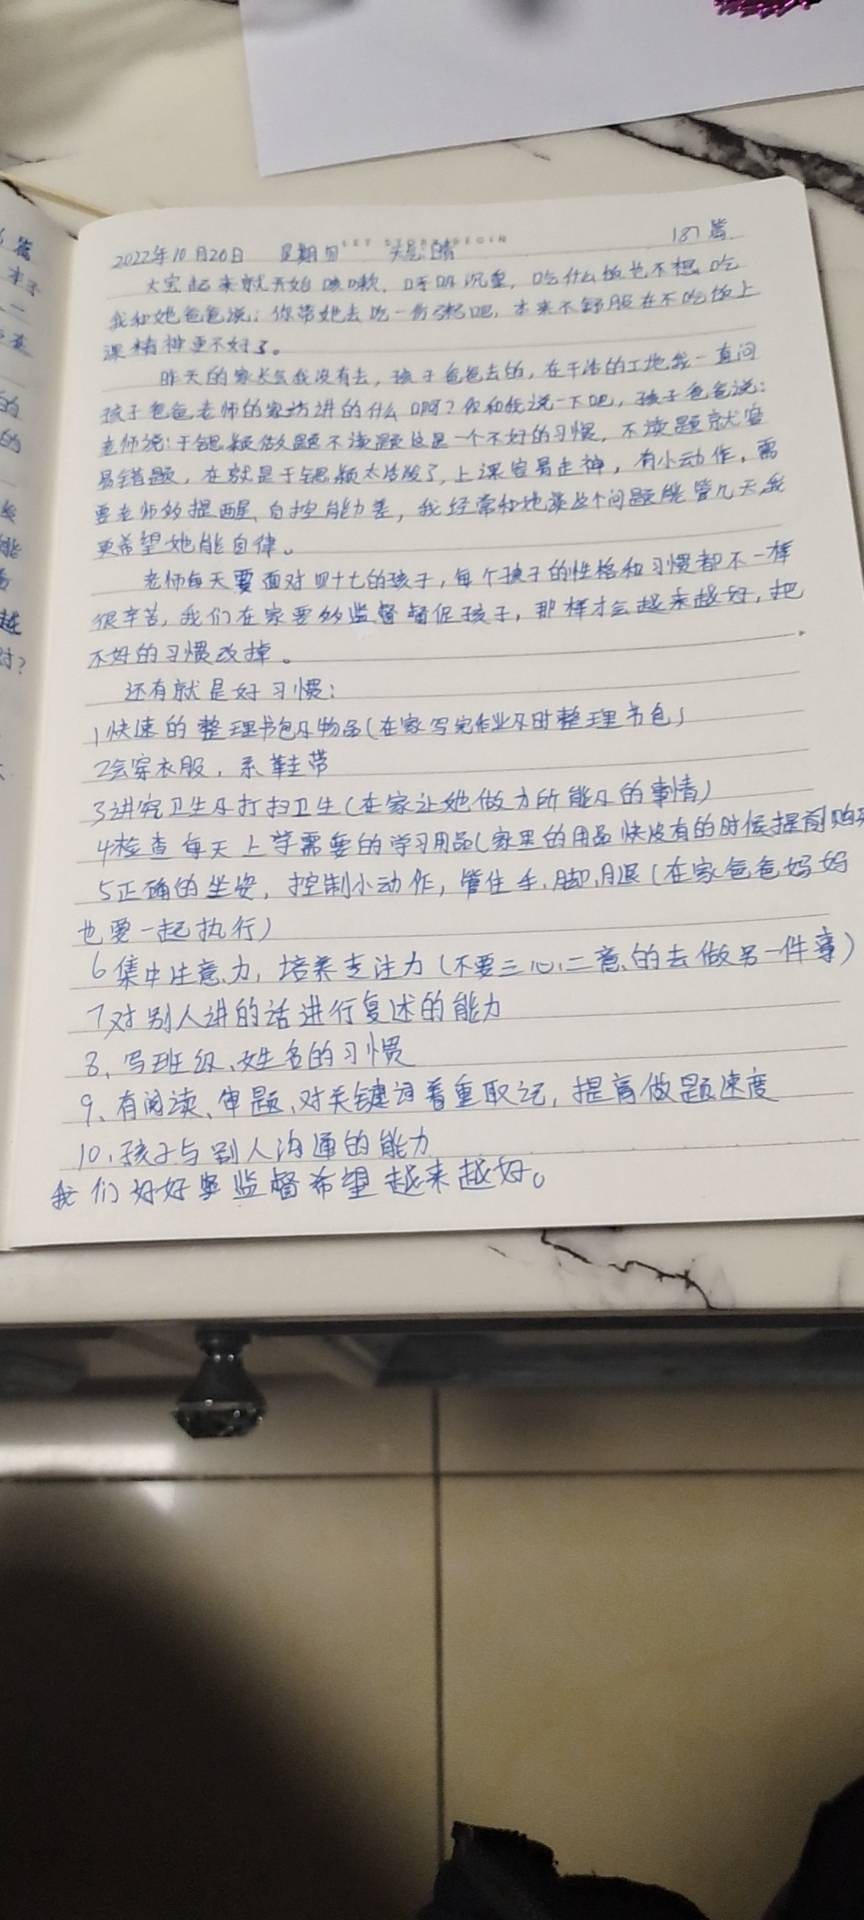 2022年10月20日 星期四 天气:晴 187篇
大宝起来就开始咳嗽,呼吸沉重,吃什么饭也不想吃
我和她爸爸说:你带她去吃一份粥吧,本来不舒服在不吃饭上
课精神更不好了。
昨天的家长会我没有去,孩子爸爸去的,在干活的工地我一直问
孩子爸爸老师的家访讲的什么啊?你和我说一下吧,孩子爸爸说:
老师说:于锶颖做题不读题这是一个不好的习惯,不读题就容
易错题,在就是于锶颖太活泼了,上课容易走神,有小动作,需
要老师的提醒,自控能力差,我经常和她说这个问题能管几天,我
更希望她能自律。
老师每天要面对四十七的孩子,每个孩子的性格和习惯都不一样
很辛苦,我们在家要多监督督促孩子,那样才会越来越好,把
不好的习惯改掉。
还有就是好习惯:
1快速的整理书包及物品(在家写完作业及时整理书包)
2会穿衣服,系鞋带
3讲究卫生及打扫卫生(在家让她做力所能及的事情)
4检查每天上学需要的学习用品(家里的用品快没有的时候提前购买
5正确的坐姿,控制小动作,管住手、脚、腿(在家爸爸妈妈
也要一起执行)
6集中注意力,培养专注力(不要三心二意的去做另一件事)
7对别人讲的话进行复述的能力
8、写班级、姓名的习惯
9、有阅读、审题、对关键词着重取记,提高做题速度
10、孩子与别人沟通的能力
我们好好要监督希望越来越好。